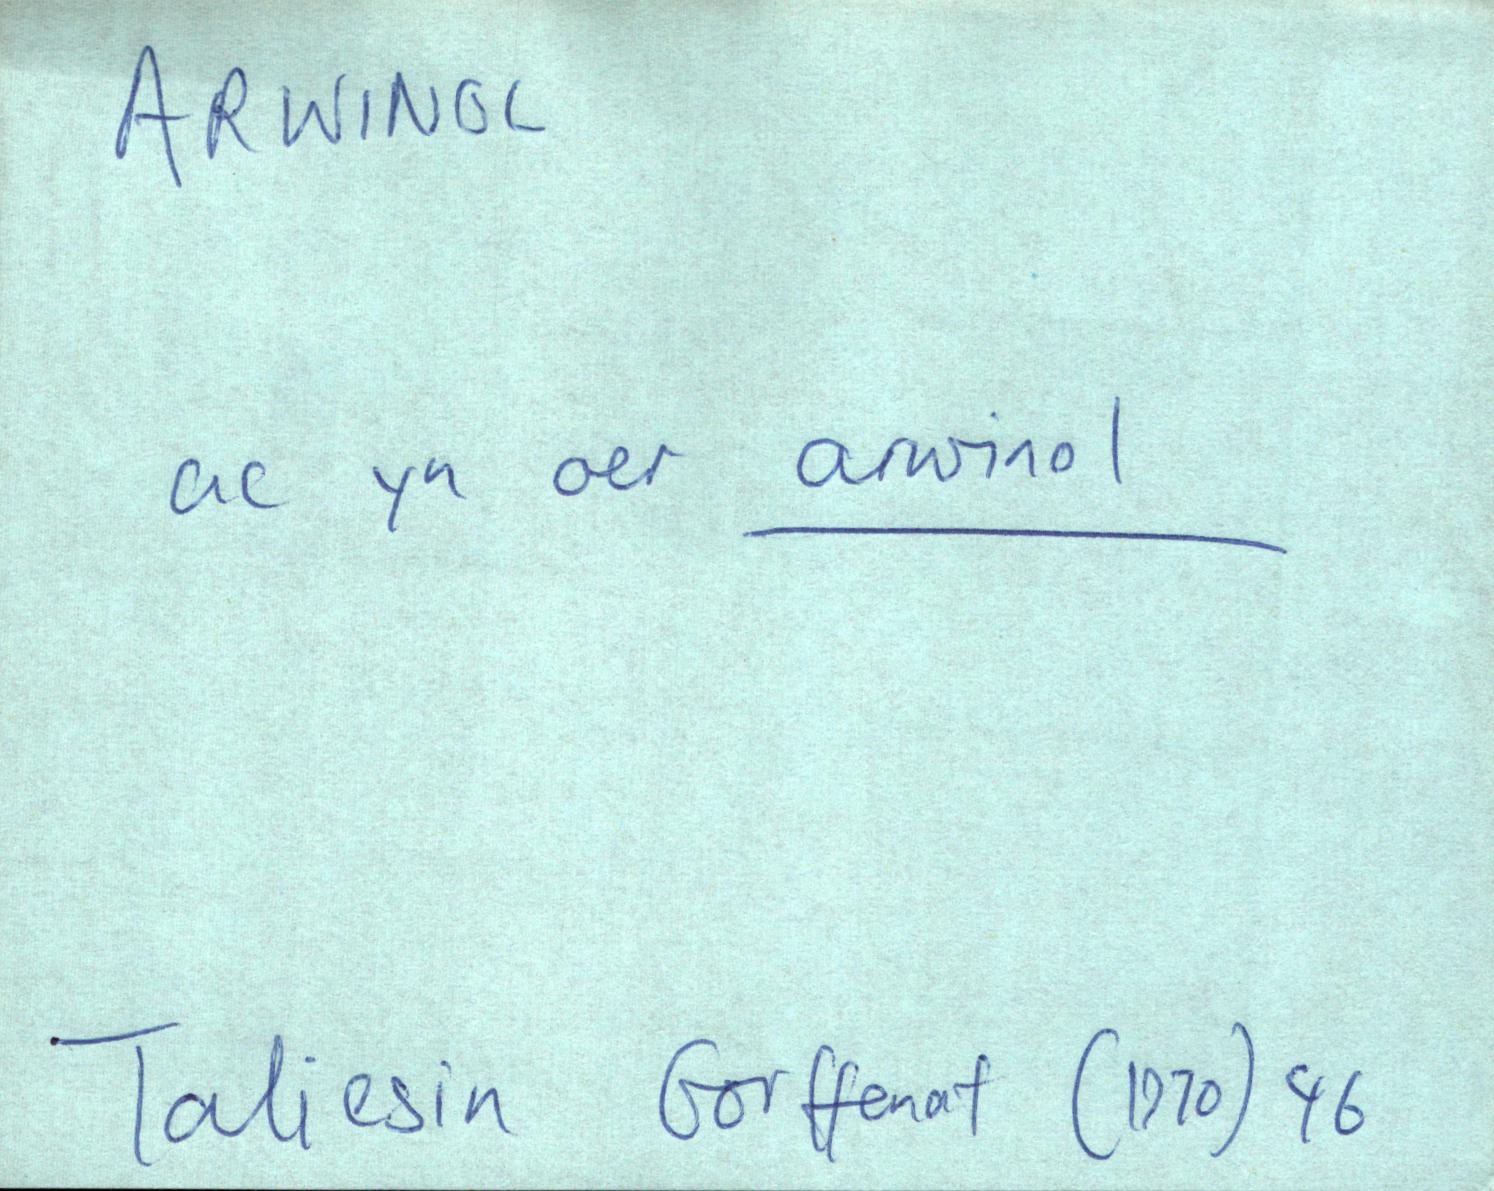 ARWINOL
ac yn oer arwinol
Taliesin Gorffenaf (1970) 46